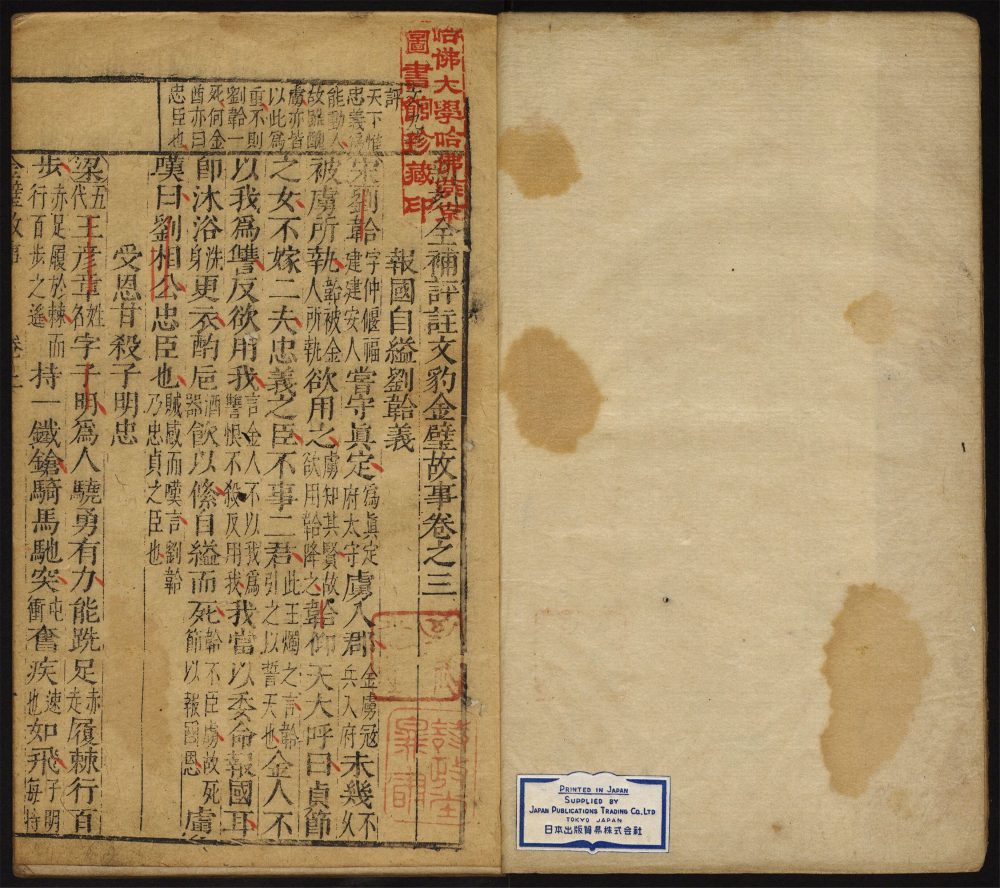 哈佛大學哈佛燕京
圖書館珍藏印
全補評註文豹金璧故事卷之三
報國自縊劉韐義
宋劉韐字仲偃福建建安人嘗守真定為真定府太守虜入郡金虜冦兵入府未幾不久
被虜所執韐被金人所執欲用之虜知其賢故欲用韐降之韐仰天大呼曰貞節
之女不嫁二夫忠義之臣不事二君此王燭之言韐引之以誓天也金人不
以我為讐反欲用我言金人不以我為讐恨不殺反用我我當以委命報國耳
卽沐浴洗身更衣酌巵酒器飲以絛自縊而死韐不臣虜故死節以報國恩虜
嘆曰劉相公忠臣也賊感而嘆言劉韐乃忠貞之臣也
受恩甘殺子明忠
梁五代王彥章姓名字子明為人驍勇有力能跣足赤走履棘行百
步赤足履於棘而行百步之遙持一鐵鎗騎馬馳突屯衝奮疾速也如飛子明每持
評
天下惟
忠義為
能動人
故雖醜
虜亦皆
以此為
重不則
劉韐一
死何金
酋亦曰
忠臣也
金璧故事
PRINTED IN JAPAN
SUPPLIED BY
JAPAN PUBLICATIONS TRADING CO., LTD
TOKYO JAPAN
日本出版貿易株式会社